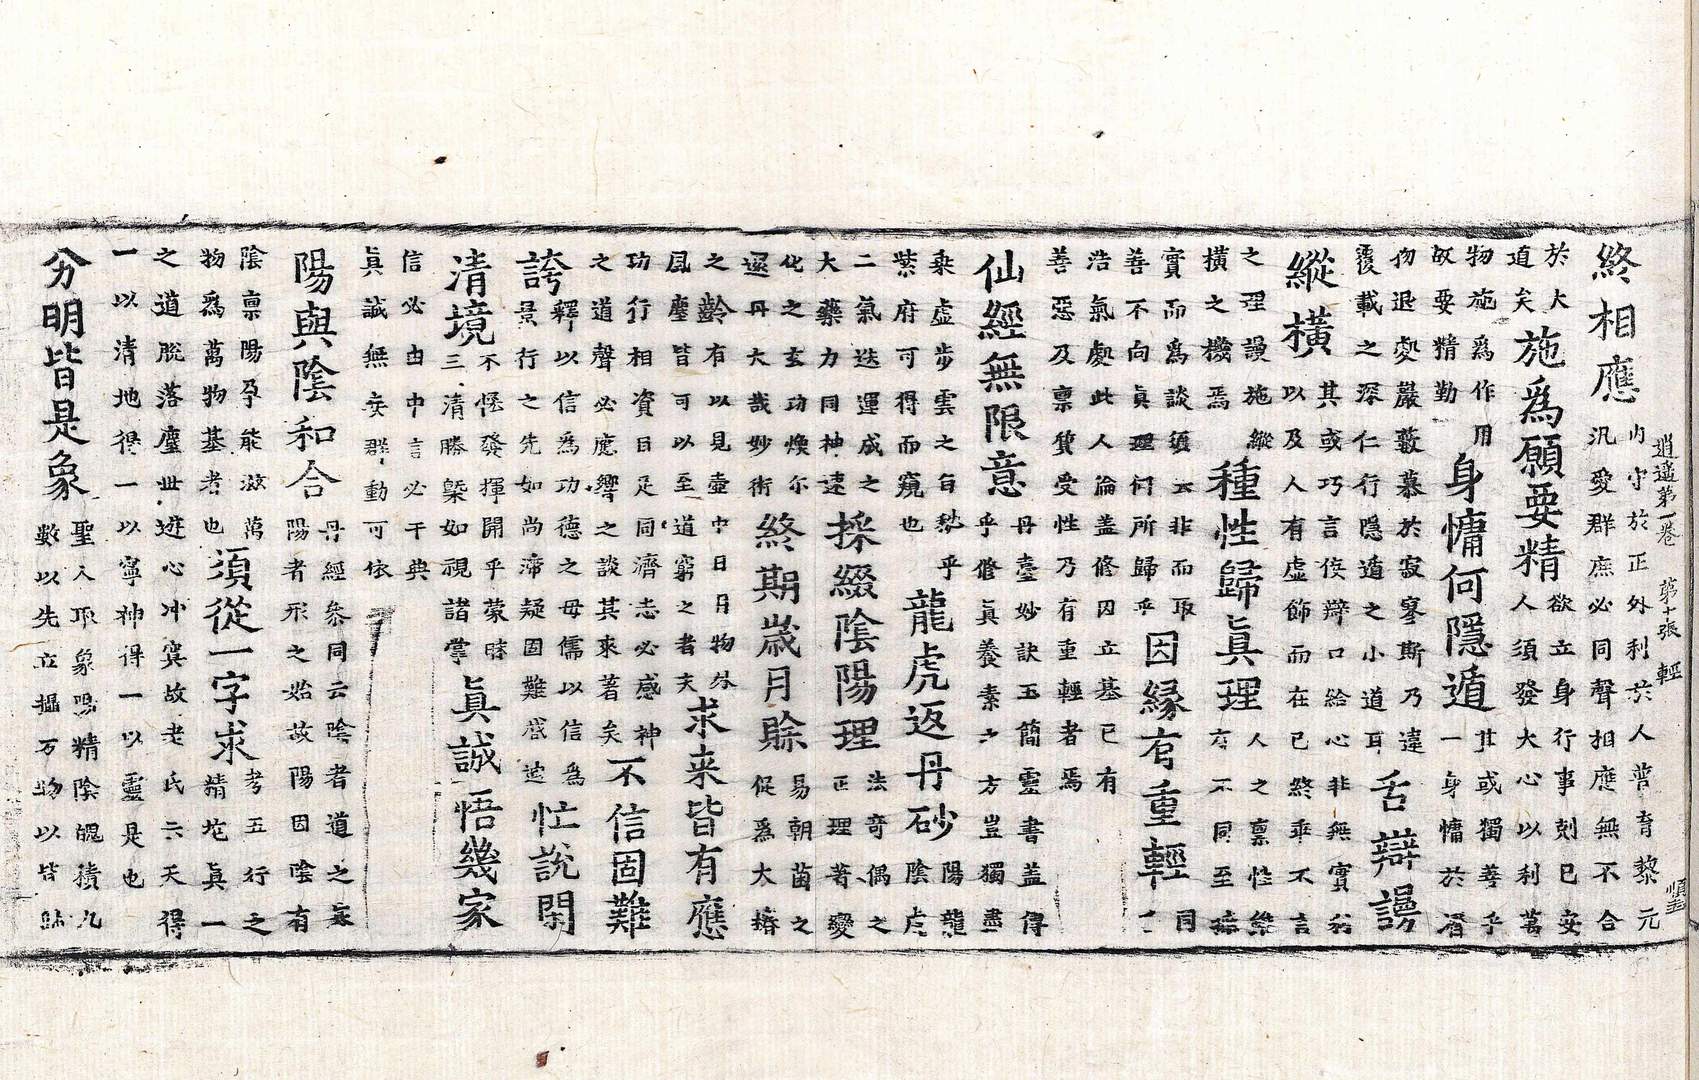 逍遥第一卷 第十張 輕
終相應内守於正外利於人普育黎元汎愛群庶必同聲相應無不合
於大道矣施爲願要精欲立身行事剋己安人須發大心以利萬
物施爲作用故要精勤身慵何隱遁其或獨善乎一身慵於濟
物退處巖藪慕於寂寥斯乃違覆載之深仁行隱遁之小道耳舌辯謾
縱橫其或巧言侫辯口給心非無實利以及人有虛飾而在己終乖不言
之理謾施縱橫之機焉種性歸眞理人之稟性有不同至
實而爲談須云非而取善不向眞理何所歸乎因縁有重輕同一
浩氣處此人倫盖修因立基已有善惡及稟質受性乃有重輕者焉
仙經無限意丹臺妙訣玉簡靈書盖得乎修眞養素之方豈獨盡
乘虛步雲之旨乎紫府可得而窺也龍虎返丹砂陽龍陰虎
二氣迭運成之大藥力同神速採綴陰陽理法奇偶之正理著變
化之玄功煥尔還丹大哉妙術終期歲月賖易朝菌之促爲大椿
之齡有以見壺中日月物外風塵皆可以至道窮之者夫求来皆有應
功行相資目足同濟志必感神之道聲必應響之談其來著矣不信固難
誇釋以信爲功德之母儒以信爲景行之先如尚滯疑固難啓迪忙說閑
清境不恡發揮開乎蒙昧三清勝槩如視諸掌眞誠悟幾家
信必由中言必于典眞誠無妄群動可依
陽與陰和合丹經參同云陰者道之陽者形之始故陽因陰有
陰稟陽孕能滋萬物爲萬物基者也須從一字求考五行之精眞一
之道脫落塵世遊心冲寞故老氏云天得一以清地得一以寧神得一以靈是也
分明皆是象聖人取象陽精陰魄積九數以先立攝万物以皆歸